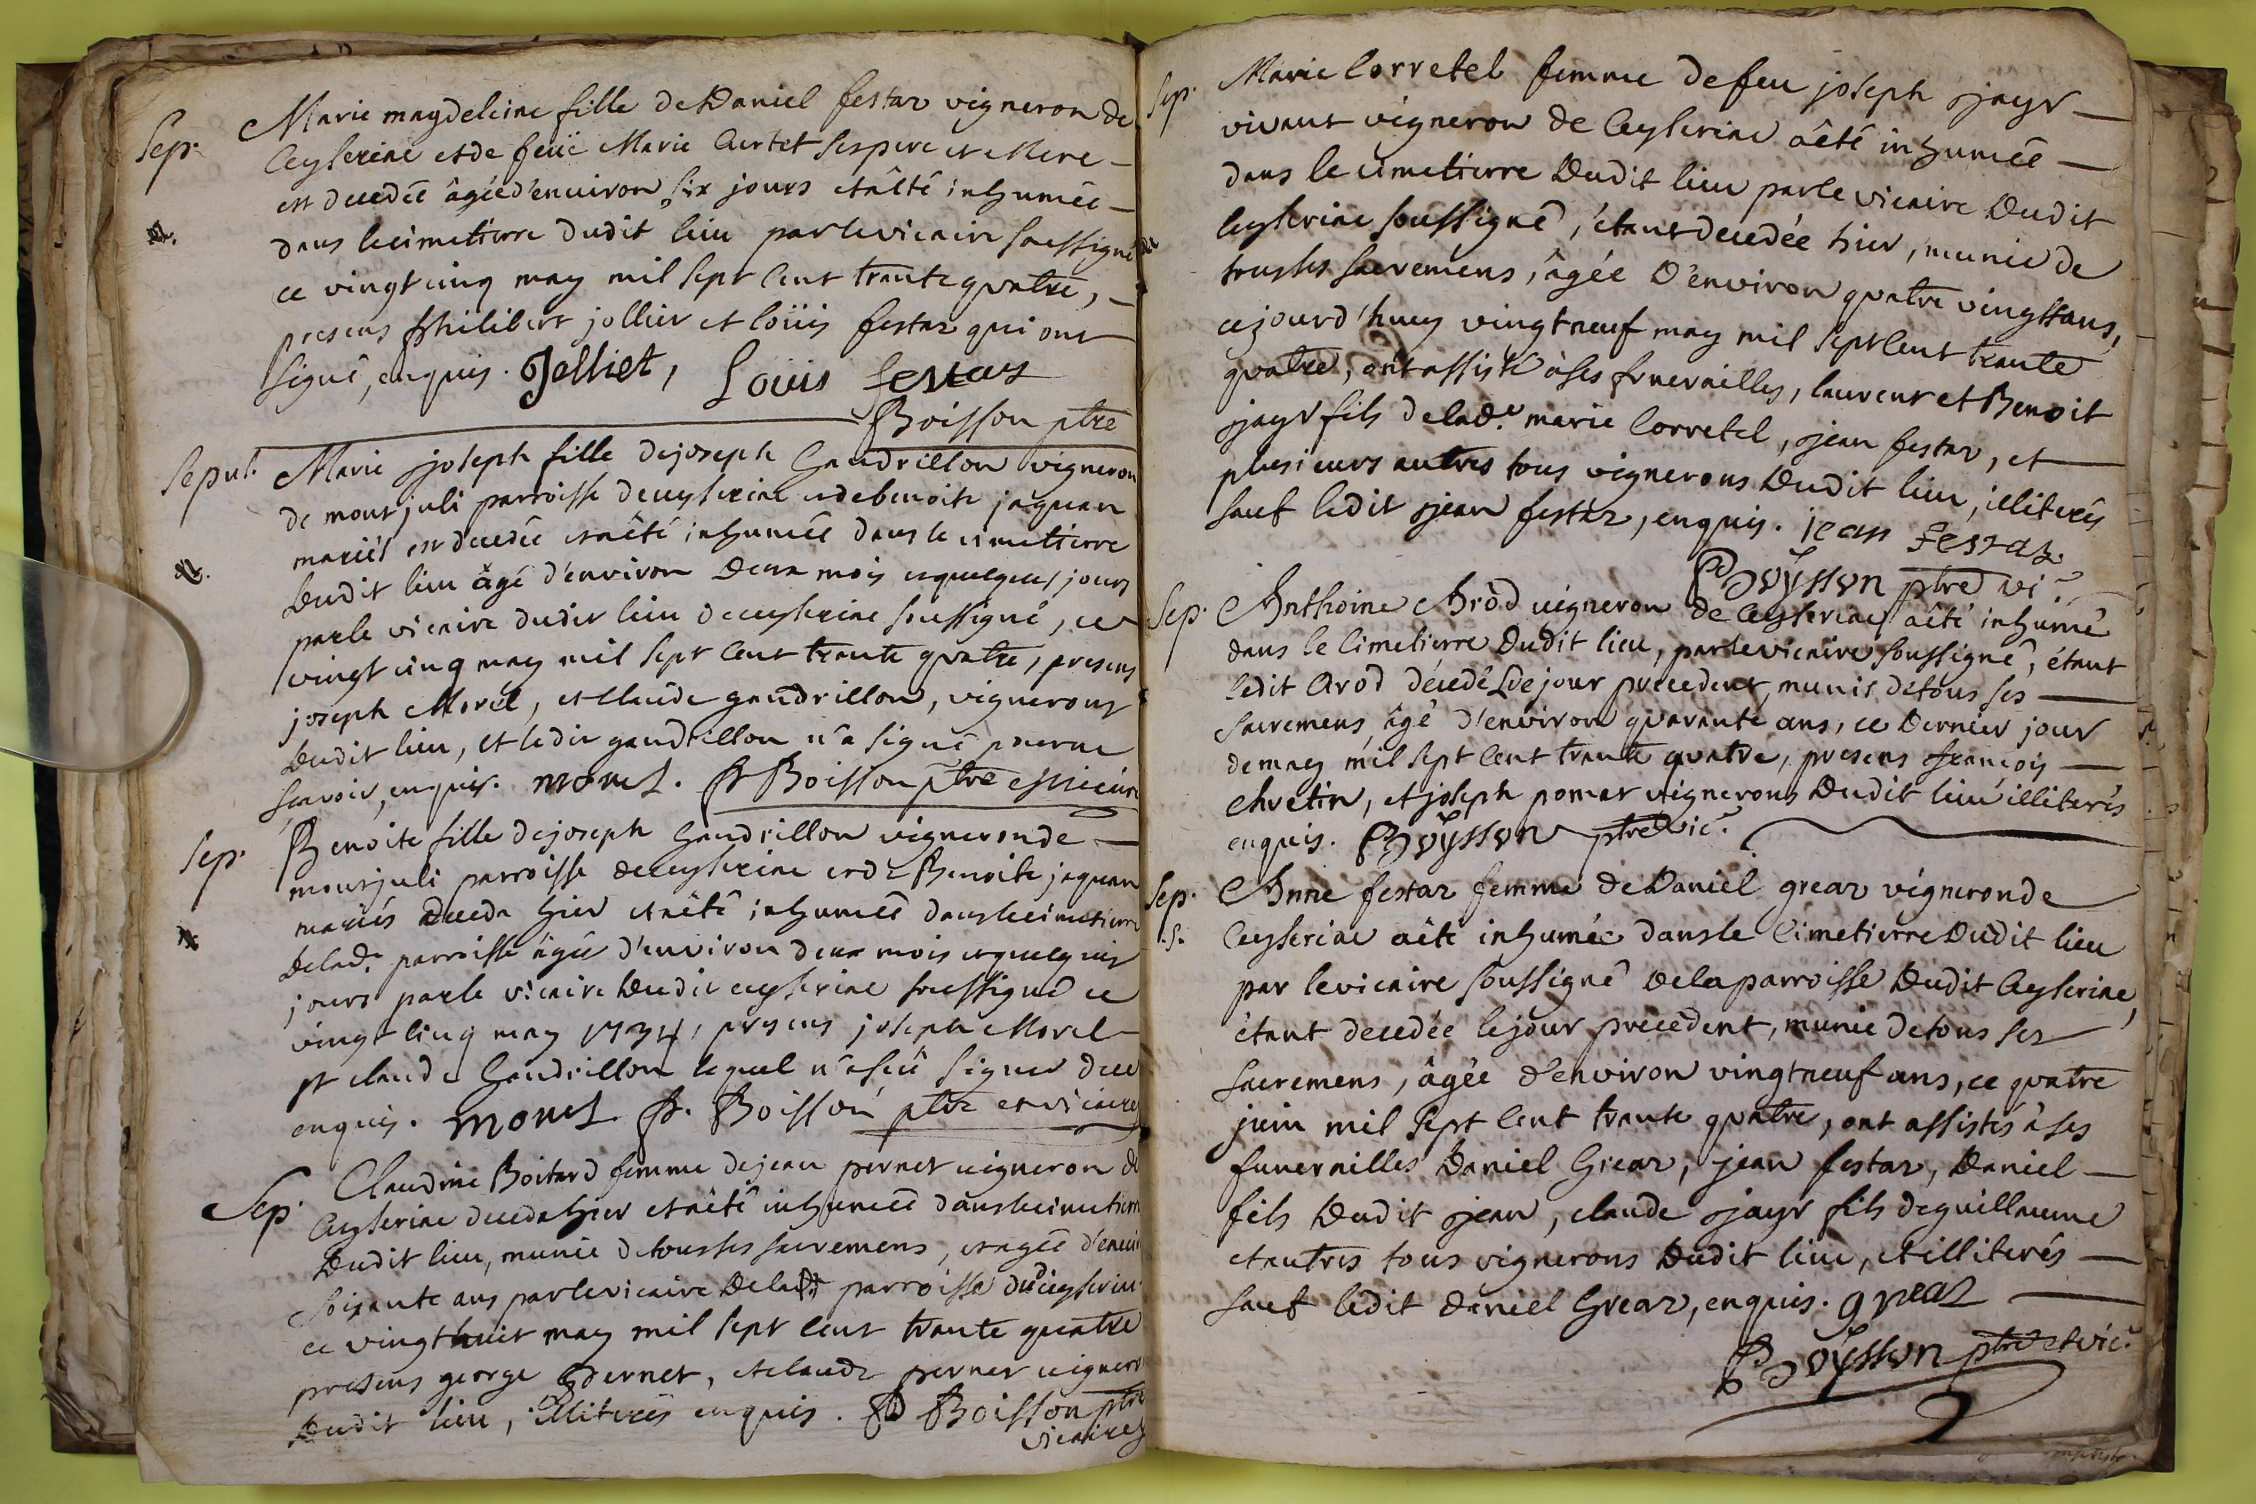 Sep. Marie magdeleine fille de Daniel festaz vigneron de
Ceyserieu et de feüe Marie Curtet ses pere et Mere
est decedée âgée d'environ six jours et a êté inhumée
dans le cimetierre dudit lieu par le vicaire soussigné
ce vingt cinq may mil sept cent trante quatre,
presens Philibert jollier et loüis festaz qui ont
signé, enquis. Jolliet, Louis festas
Boisson ptre
Sepul. Marie joseph fille de joseph Gaudrillon vigneron
de mont juli parroisse de ceyserieu et de benoite jaquan
mariés est decedée et a êté inhumée dans le cimetierre
Dudit lieu âgé d'environ deux mois et quelques jours
par le vicaire dudit lieu de ceyserieu soussigné, ce
vingt cinq may mil sept cent trante quatre, presens
joseph Morel, et claude gaudrillon, vignerons
dudit lieu, et ledit gaudrillon n'a signé pour ne
scavoir, enquis. morel. P Boisson ptre et vicaire
Sep. Benoite fille de joseph Gaudrillon vigneron de
mont juli parroisse de ceyserieu et de Benoite jaquan
mariés deceda hier et a êté inhumée dans le cimetierre
de lad. parroisse âgée d'environ deux mois et quelques
jours par le vicaire dudit ceyserieu soussigné ce
vingt cinq may 1734, presens joseph Morel
et claude Gaudrillon lequel n'a sçû signer
enquis. morel P. Boisson ptre et vicaire
Sep. Claudine Boitard femme de jean pernet vigneron de
Ceyserieu deceda hier et a êté inhumée dans le cimetierre
Dudit lieu, munie de tous ses sacremens, et agée d'envir
soixante ans par le vicaire de la parroisse dud ceyserieu
ce vingt huit may mil sept cent trante quatre
presens george Pernet, et claude pernet vignero
Dudit lieu, illiterés enquis. P Boisson ptre
vicaire
Sep. Marie Corretel femme de feu joseph jayr
vivant vigneron de Ceyserieu a êté inhumée
dans le cimetierre dudit lieu par le vicaire dudit
Ceyserieu soussigné, étant decedée hier, munie de
tous ses sacremens, âgée d'environ quatre vingts ans,
cejourd'huy vingt neuf may mil sept cent trante
quatre, ont assisté à ses funerailles, laurent et Benoit
jayr fils de lad.e marie Corretel, jean festaz, et
plusieurs autres tous vignerons dudit lieu, illiterés
sauf ledit jean festaz, enquis. jean Festaz
P Boÿsson ptre vi.
Sep. Anthoine Arod vigneron de Ceyserieu a êté inhumé
dans le Cimetierre dudit lieu, par le vicaire soussigné, étant
ledit Arod décedé le jour precedent, munis de tous ses
sacremens, âgé d'environ quarante ans, ce dernier jour
de may mil sept cent trante quatre, presens françois
chretin, et joseph pomar vignerons dudit lieu illiterés
enquis. P Boÿsson ptre vic.
Sep. Anne festaz femme de Daniel greaz vigneron de
Ceyserieu a êté inhumée dans le Cimetierre dudit lieu
par le vicaire soussigné de la parroisse dudit Ceyserieu,
étant decedée le jour precedent, munie de tous ses
sacremens, âgée d'environ vingt neuf ans, ce quatre
juin mil sept cent trante quatre, ont assistés à ses
funerailles Daniel Greaz, jean festaz, Daniel
fils dudit jean, claude jayr fils de guillaume
et autres tous vignerons dudit lieu, et illiterés
sauf ledit Daniel Greaz, enquis. greaz
P Boÿsson ptre et vic.